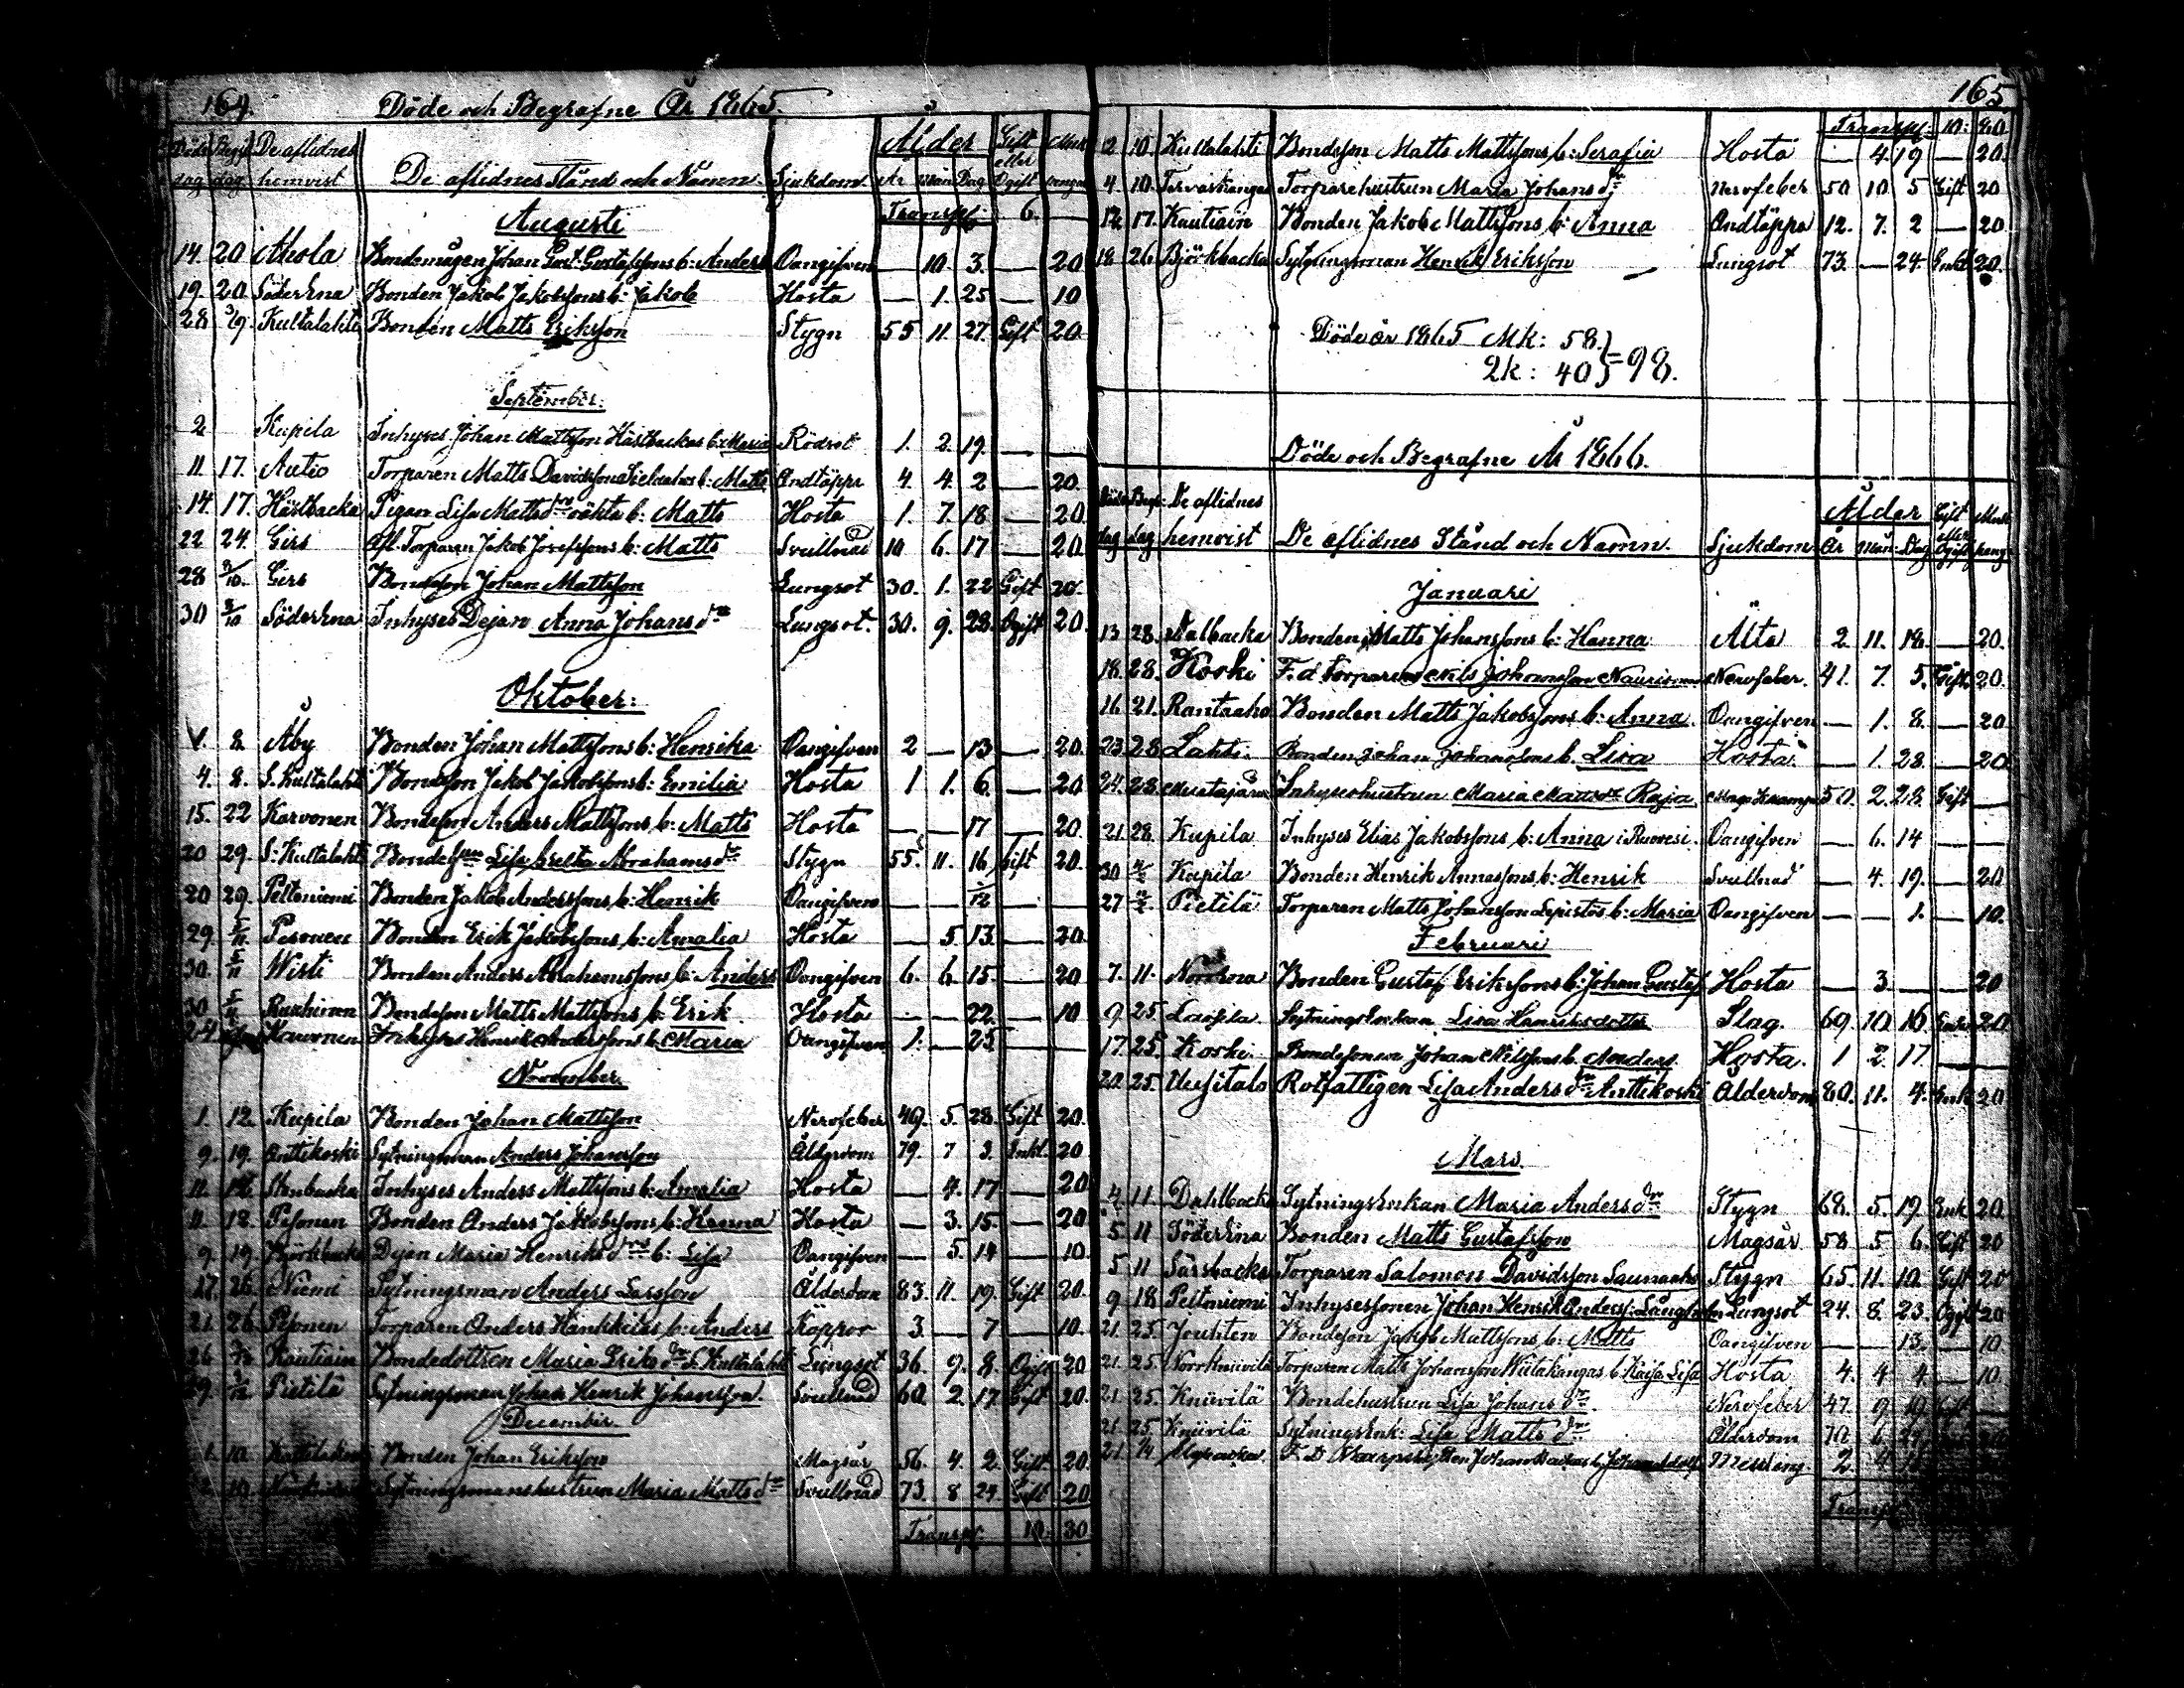 164.
Döde och Begrafne År 1865.
Döde dag Begr. dag De aflidnes hemvist De aflidnes Stånd och Namn Sjukdom Ålder År Mån Dag Gift eller Ogift
Transp: 6. —
Augusti
14. 20 Ahola Bondemågen Johan Gust. Gustafssons b: Anders Oangifven — 10 3. — 20
19. 20 Söderkna Bonden Jakob Jakobssons b: Jakob Hosta — 1. 25 — 10
28 3/9. Kultalahti Bonden Matts Eriksson Stygn 55 11. 27. Gift 20.
September:
2 Kupila Inhyses Johan Mattsson Hästbackas b: Maria Rödsot 1. 2. 19. — —
11. 17. Autio Torparen Matts Davidsson b: Matts Andtäppa 4. 4. 2 — 20.
14. 17. Hästbacka Pigan Lisa Matts drs oäkta b: Matts Hosta 1. 7. 18 — 20.
22 24. Girs Afl. Torparen Jakob Josefssons b: Matts Svullnad 10 6. 17 — 20.
28 Girs Bondeson Johan Mattsson Lungsot 30. 1. 22 Gift 20.
30 Söderkna Inhyses Dejan Anna Johans dr Lungsot. 30. 9. 28. Ogift 20.
Oktober:
1. 8. Åby Bonden Johan Mattssons b: Henrika Oangifven 2 — 13 — 20.
4. 8. S. Kultalahti Bondeson Jakob Jakobssons b: Emilia Hosta 1 1. 6. — 20
15. 22 Karvonen Bondeson Anders Mattssons b: Matts Hosta — — 17 — 20.
20 29. S: Kultalahti Lisa Greta Abrahams dr Stygn 55. 11. 16 Gift 20.
20 29. Peltoniemi Bonden Jakob Anderssons b: Henrik Oangifven — — 1/2 —
29. 5/11 Pesonen Bonden Erik Jakobssons b: Amalia Hosta — 5 13. — 20
30. 5/11 Wisti Bonden Anders Abrahamssons b: Anders Oangifven 6. 6. 15. — 20
30 5/11 Bondeson Matts Mattssons b: Erik Hosta — — 22. — 10
24. Kauvonen Inhyses Henrik Anderssons b. Maria Oangifven 1. — 25 — —
November.
1. 12. Kupila Bonden Johan Mattsson Nervfeber 49. 5. 28. Gift 20.
9. 19. Anttikoski Sytningsman Anders Johansson Ålderdom 79. 7 3. Enkl. 20
11. Stenbacka Inhyses Anders Mattssons b: Amalia Hosta — 4. 17 — 20
11. 12. Pesonen Bonden Anders Jakobssons b: Hanna Hosta — 3. 15. — 20
9. 19. Björkbacka Dejan Maria Henriks drs b: Lisa Oangifven — 5. 14 — 10.
17. 26. Niemi Sytningsman Anders Larsson Ålderdom 83. 11. 19. Gift 20.
21. 26. Pesonen Torparen Anders b: Anders Koppor 3. — 7 — 10.
26 Kautiain Bondedottren Maria Eriks dr S. Kultalahti Lungsot 36. 9. 8. Ogift 20
29. Pietilä Sytningsman Johan Henrik Johansson. Svullnad 60. 2. 17. Gift 20.
December.
1. 10. Bonden Johan Eriksson Magsår 56. 4. 2. Gift 20.
10. Sytningsmanshustrun Maria Matts dr Svullnad 73. 8 24 Gift 20
Transp: 10. 30.
165
Transp: 10: 80
12 10. Kultalahti Bondeson Matts Mattssons b: Serafia Hosta — 4. 19 — 20.
4. 10. Tervaskangas Torparehustrun Maria Johans dr Nervfeber 50 10. 5 Gift 20
12. 17. Kautiain Bonden Jakob Mattssons b: Anna Andtäppa 12. 7. 2 — 20
18 26. Björkbacka Sytningsman Henrik Eriksson Lungsot 73. — 24. Enkl 20.
Döde år 1865 Mk: 58.
Qk: 40 } = 98.
Döde och Begrafne År 1866.
Döde dag Begr: dag De aflidnes hemvist De aflidnes Stånd och Namn. Sjukdom Ålder År Mån: Dag Gift eller Ogift
Januari
13. 28. Dalbacka Bonden Matts Johanssons b: Hanna Älta 2. 11. 18. — 20.
18. 28. Koski F. d. torparen Nils Johansson Nervfeber. 41. 7. 5. Gift. 20.
16. 21. Rantaaho Bonden Matts Jakobssons b: Anna. Oangifven — 1. 8. — 20
23. 28 Lahti. Bonden Johan Johanssons b. Lisa Hosta. — 1. 28. — 20
24. 28. Mustajärvi Inhyseshustrun Maria Matts dr Raja Magkramp 50. 2. 28. Gift —
21 28. Kupila Inhyses Elias Jakobssons b: Anna i Ruovesi. Oangifven — 6. 14 — —
30 Kupila Bonden Henrik Annassons b: Henrik Svullnad — 4. 19. — 20
27 Pietilä Torparen Matts Johansson Lepistös b: Maria Oangifven — — 1. — 10.
Februari
7. 11. Norrkna Bonden Gustaf Erikssons b: Johan Gustaf Hosta — 3. — — 20
9 25. Laajala Sytningsenkan Lisa Henriksdotter Slag. 69. 10. 16 Enka 20
17. 25. Koski. Bondesonen Johan Nilssons b. Anders Hosta. 1 2. 17. — —
20. 25. Uusitalo Rotfattigen Lisa Anders dr Anttikoski Ålderdom 80. 11. 4. Enk 20
Mars.
4. 11. Dahlbacka Sytningsenkan Maria Anders dr Stygn 68. 5. 19. Enk 20.
5. 11 Söderkna Bonden Matts Gustafsson Magsår 58 5 6. Gift 20
5 11 Sarsbacka Torparen Salomon Davidsson Saunaaho Stygn 65. 11. 10. Gift 20
9 18 Peltoniemi Inhysessonen Johan Henrik Anderss: Långholm Lungsot 24. 8. 23. Ogift 20
21. 25. Jouhten Bondeson Jakob Mattssons b: Matts Oangifven — — 13. — 10.
21. 25. Norrkniivilä Torparen Matts Johansson Wiitakangas b. Kaisa Lisa Hosta 4. 4 4. — 10.
21. 25. Kniivilä Bondehustrun Lisa Johans dr. Nervfeber 47. 9 19 Gift —
21 25. Kniivilä Sytningsenk: Lisa Matts dr Ålderdom
21. F. D Messling. 2
Transp: